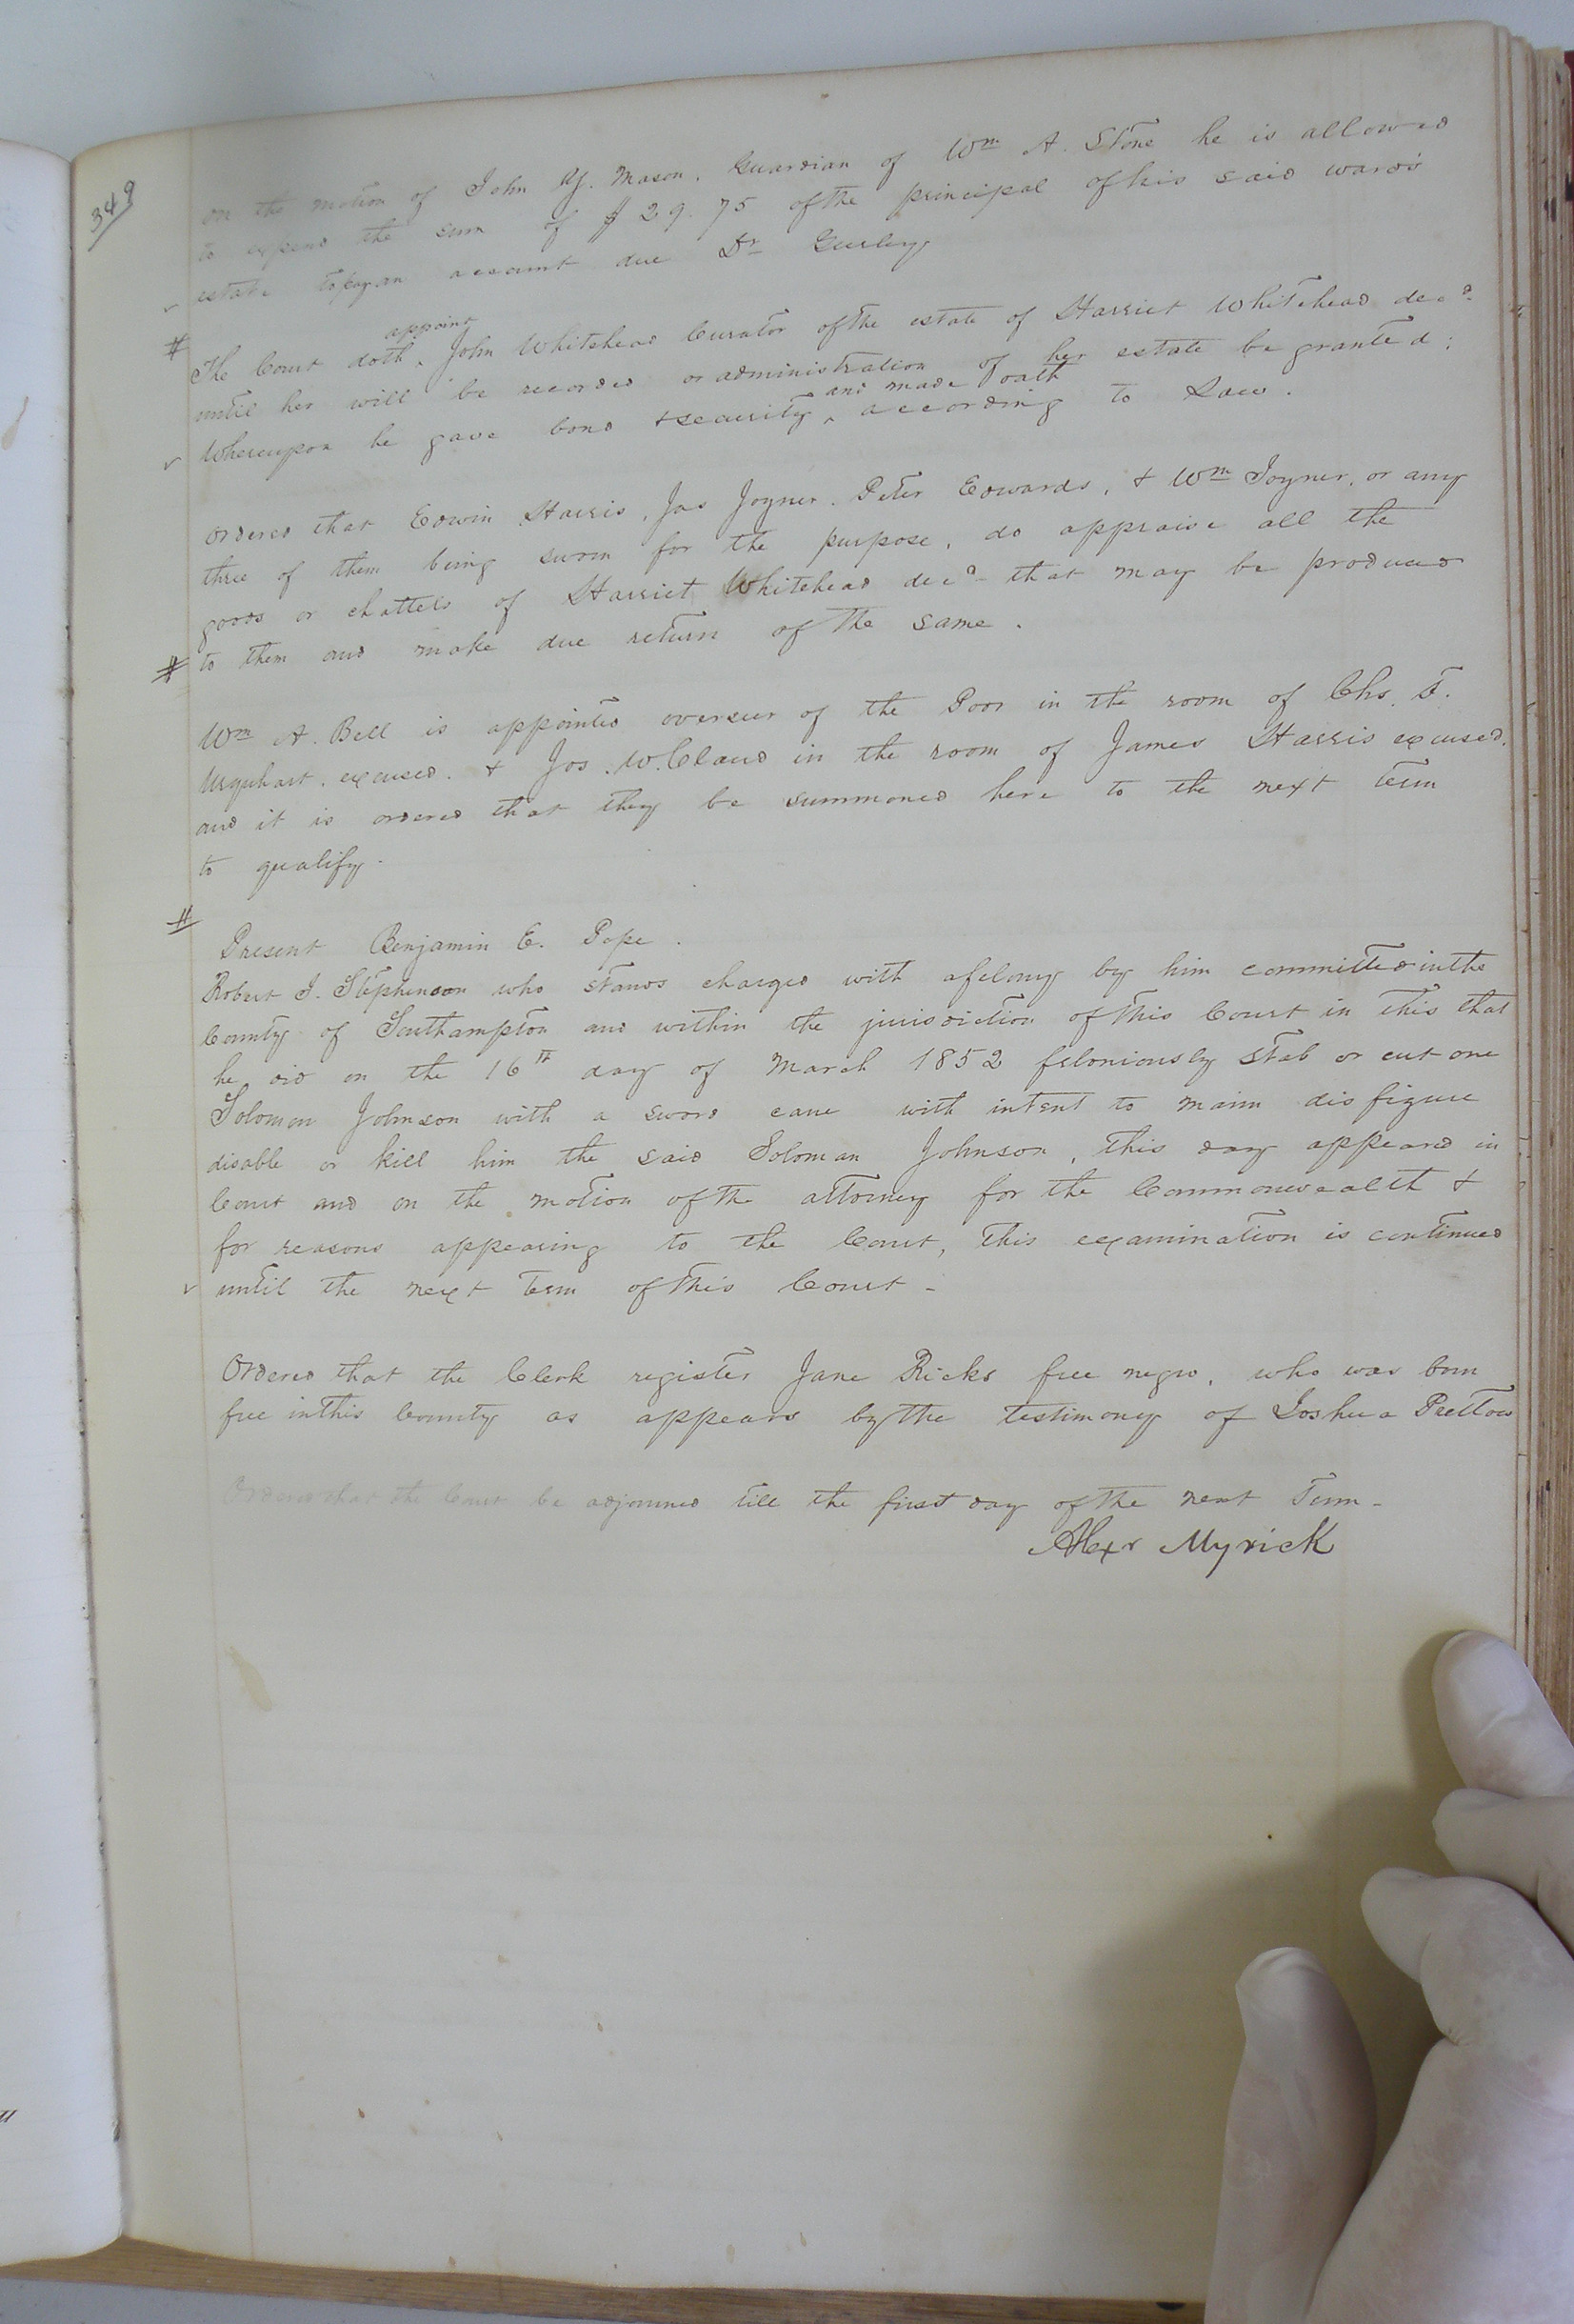 349
On the motion of John Y. Mason, Guardian of Wm A. Stone he is allowed
to expend the sum of $29.75 of the principal of his said ward's
estate to pay an account due Dr Gurley
#
The Court doth appoint John Whitehead Curator of the estate of Harriet Whitehead decd
until her will be recorded or administration of her estate be granted;
Whereupon he gave bond & security and made oath according to Law.
Ordered that Edwin Harris, Jas Joyner, Peter Edwards, & Wm Joyner, or any
three of them being sworn for the purpose, do appraise all the
goods or chattels of Harriet Whitehead decd that may be produced
# to them and make due return of the same.
Wm A. Bell is appointed overseer of the Poor in the room of Chs. F.
Urquhart, excused. & Jos. W. Claud in the room of James Harris excused,
and it is ordered that they be summoned here to the next term
to qualify.
#
Present Benjamin E. Pope.
Robert J. Stephenson who stands charged with a felony by him committed in the
County of Southampton and within the jurisdiction of this Court in this that
he did on the 16th day of March 1852 feloniously stab or cut one
Solomon Johnson with a sword cane with intent to maim disfigure
disable or kill him the said Soloman Johnson, this day appeared in
Court and on the motion of the attorney for the Commonwealth &
for reasons appearing to the Court, this examination is continued
until the next term of this Court -
Ordered that the Clerk register Jane Ricks free negro, who was born
free in this County as appears by the testimony of Joshua Pretlow
Ordered that the Court be adjourned till the first day of the next Term -
Alexr Myrick